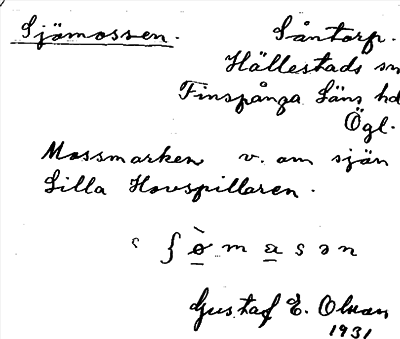 Sjömossen.
Såntorp.
Hällestads sn
Finspånga Läns hd
Ögl.
Mossmarken v. om sjön
Lilla Hovspillaren.
ʃø̀masən
Gustaf E. Olson
1931